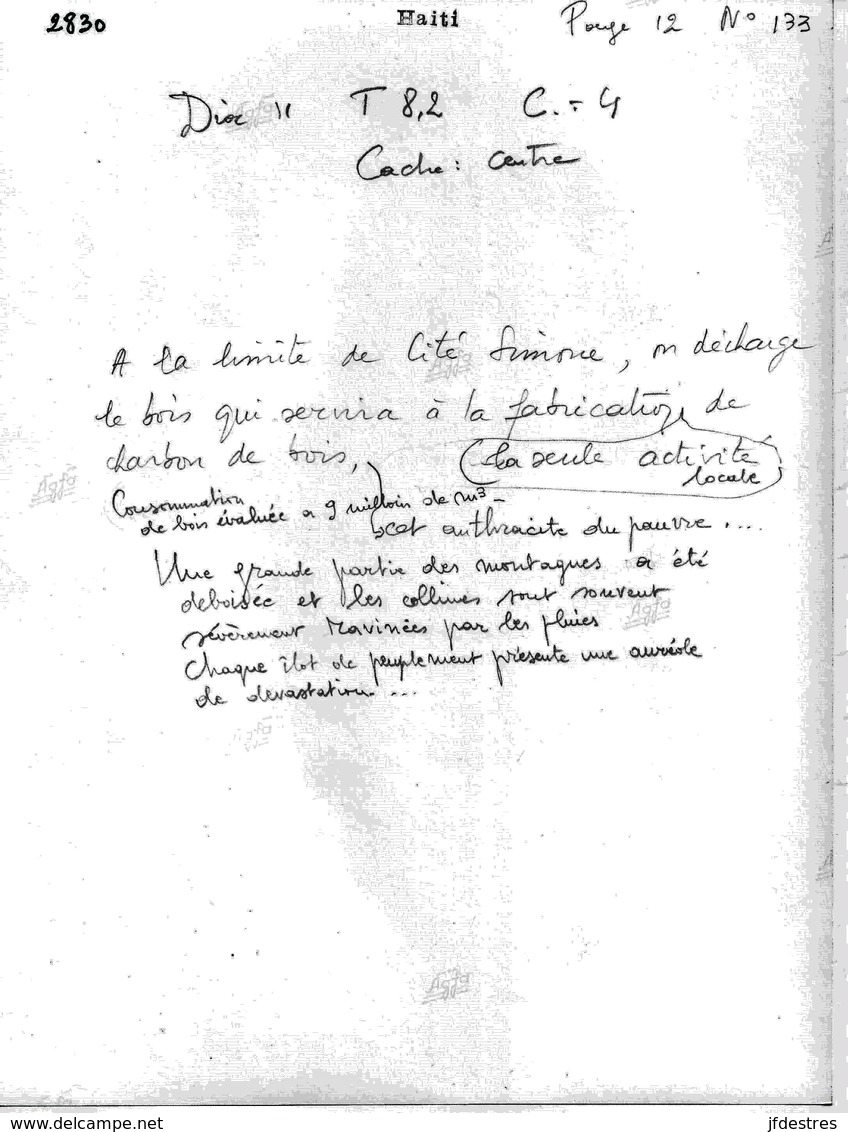 2830
Haiti
Page 12 N° 133
Diac 11 T 8,2 C. = 4
Cache : centre
A la limite de Cité Simone, on décharge
le bois qui servira à la fabrication, de
charbon de bois, (la seule activité
locale)
Consommation
de bois évaluée a 9 milloin de m³ -
cet anthracite du pauvre ....
Une grande partie des montagnes a été
deboisée et les collines sont souvent
sévèrement ravinées par les pluies
Chaque îlot de peuplement présente une auréole
de devastation. ...
Agfa
Agfa
Agfa
Agfa
Agfa
Agfa
www.delcampe.net
jfdestres